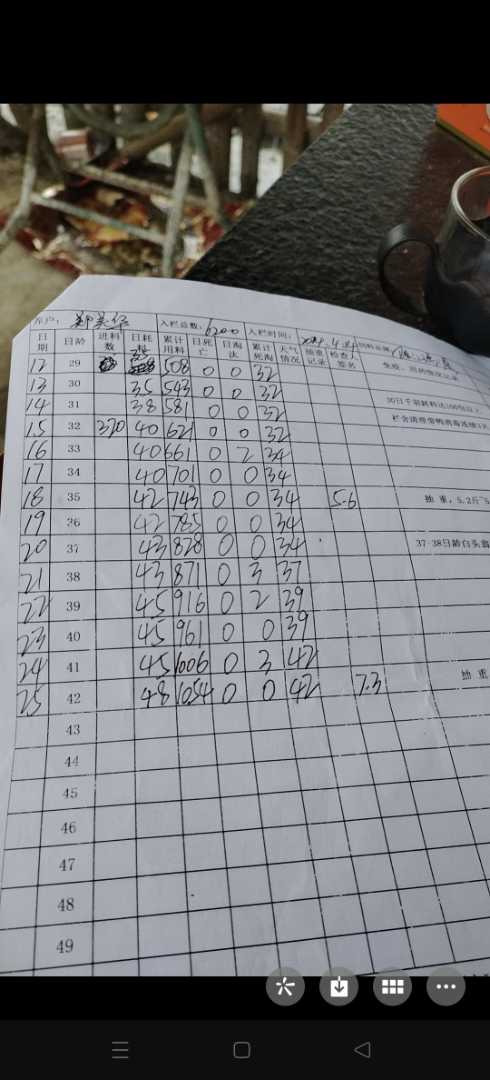 入栏总数: 6200 入栏时间:
日期 日龄 进料数 日耗料 累计用料 日死亡 日淘汰 累计死淘 天气情况 抽重记录 检查人签名 免疫、用药情况记录
12 29 508 0 0 32
13 30 35 543 0 0 32
14 31 38 581 0 0 32
15 32 320 40 621 0 0 32
16 33 40 661 0 2 34
17 34 40 701 0 0 34
18 35 42 743 0 0 34 5.6 抽重,5.2斤
19 36 42 785 0 0 34
20 37 43 828 0 0 34 37-38日龄白头翁
21 38 43 871 0 3 37
22 39 45 916 0 2 39
23 40 45 961 0 0 39
24 41 45 1006 0 3 42
25 42 48 1054 0 0 42 7.3 抽重
43
44
45
46
47
48
49